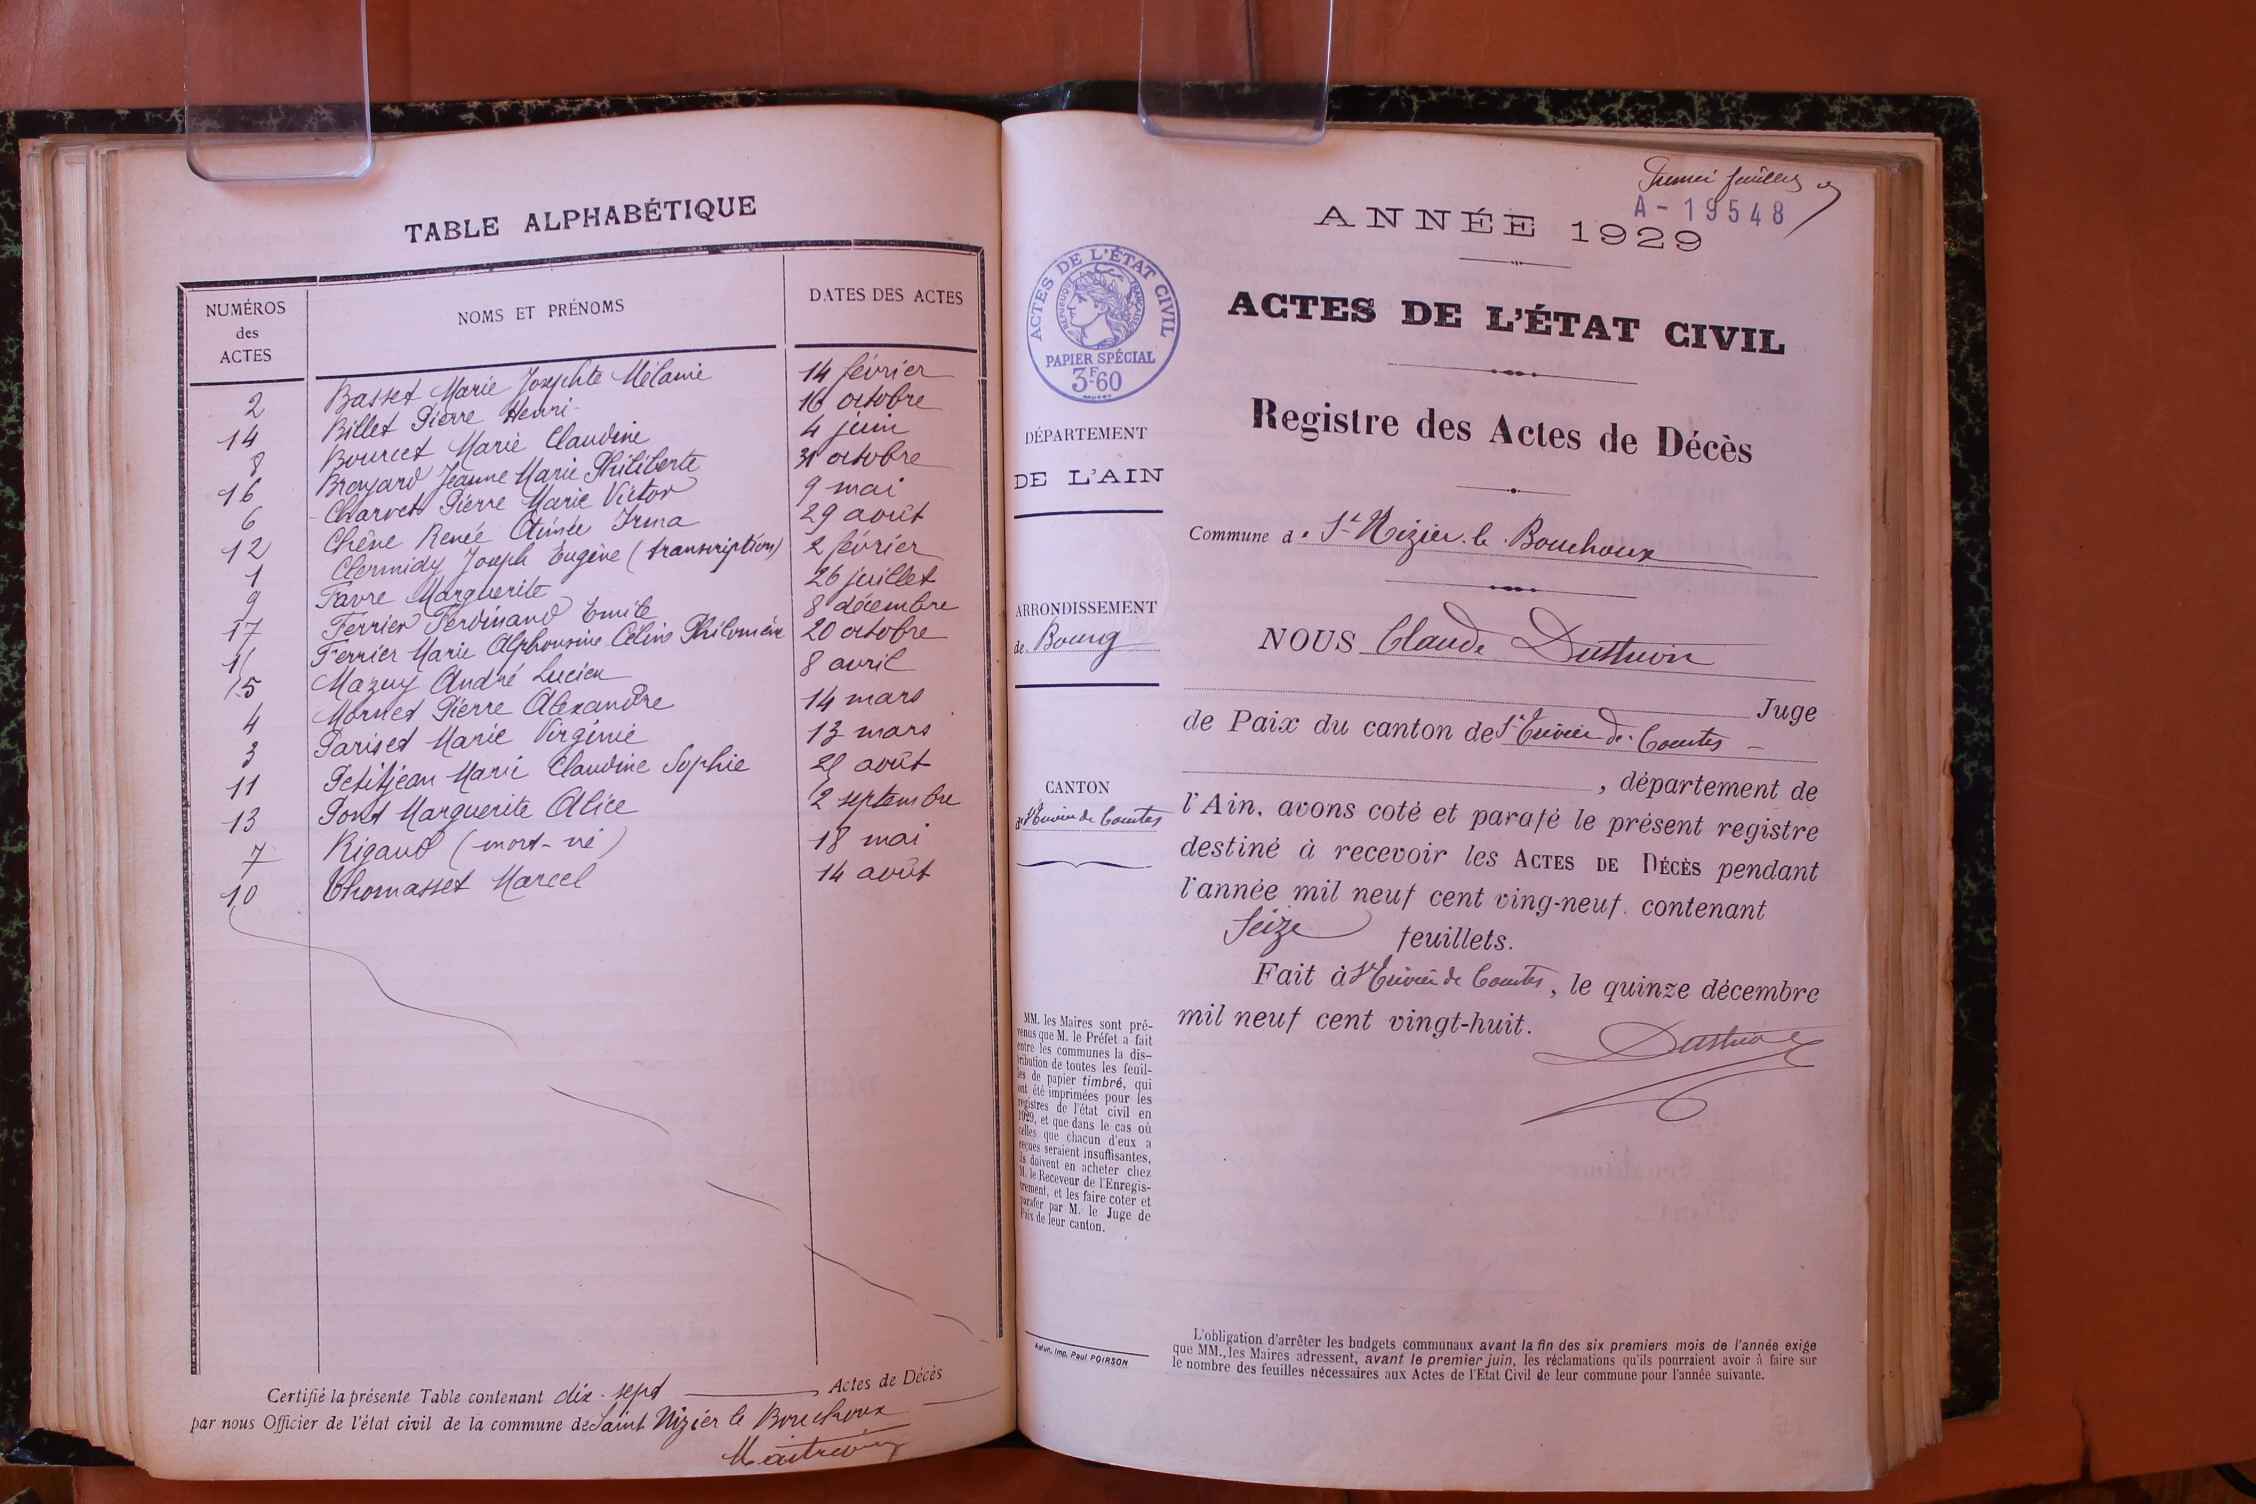 TABLE ALPHABÉTIQUE
NUMÉROS des ACTES NOMS ET PRÉNOMS DATES DES ACTES
2 Basset Marie Josephte Mélanie 14 février
14 Billet Pierre Henri 16 octobre
8 Bourcet Marie Claudine 4 juin
16 Brouyard Jeanne Marie Philiberte 31 octobre
6 Charvet Pierre Marie Victor 9 mai
12 Chêne Renée Aimée Irma 29 août
1 Clermidy Joseph Eugène (transcription) 2 février
9 Favre Marguerite 26 juillet
17 Ferrier Ferdinand Emile 8 décembre
15 Ferrier Marie Alphonsine Céline Philomène 20 octobre
5 Mazuy André Lucien 8 avril
4 Mornet Pierre Alexandre 14 mars
3 Pariset Marie Virginie 13 mars
11 Petitjean Marie Claudine Sophie 29 août
13 Pont Marguerite Alice 2 septembre
7 Rigaud (mort-né) 18 mai
10 Thomasset Marcel 14 août
Certifié la présente Table contenant dix-sept Actes de Décès
par nous Officier de l'état civil de la commune de Saint Nizier le Bouchoux
Premier feuillet
A-19548
ANNÉE 1929
ACTES DE L'ÉTAT CIVIL
RÉPUBLIQUE FRANÇAISE
PAPIER SPÉCIAL
3F60
ACTES DE L'ÉTAT CIVIL
Registre des Actes de Décès
DÉPARTEMENT
DE L'AIN
Commune de St Nizier-le-Bouchoux
ARRONDISSEMENT
de Bourg
NOUS Claude
Juge
de Paix du canton de St Trivier-de-Courtes
CANTON
de St Trivier de Courtes
, département de
l'Ain, avons coté et parafé le présent registre
destiné à recevoir les ACTES DE DÉCÈS pendant
l'année mil neuf cent ving-neuf. contenant
Seize feuillets.
Fait à St Trivier de Courtes, le quinze décembre
mil neuf cent vingt-huit.
MM. les Maires sont pré-
venus que M. le Préfet a fait
entre les communes la dis-
tribution de toutes les feuil-
les de papier timbré, qui
ont été imprimées pour les
registres de l'état civil en
1929, et que dans le cas où
celles que chacun d'eux a
reçues seraient insuffisantes,
ils doivent en acheter chez
M. le Receveur de l'Enregis-
trement, et les faire coter et
parafer par M. le Juge de
Paix de leur canton.
Autun, Imp. Paul POIRSON
L'obligation d'arrêter les budgets communaux avant la fin des six premiers mois de l'année exige
que MM., les Maires adressent, avant le premier juin, les réclamations qu'ils pourraient avoir à faire sur
le nombre des feuilles nécessaires aux Actes de l'Etat Civil de leur commune pour l'année suivante.